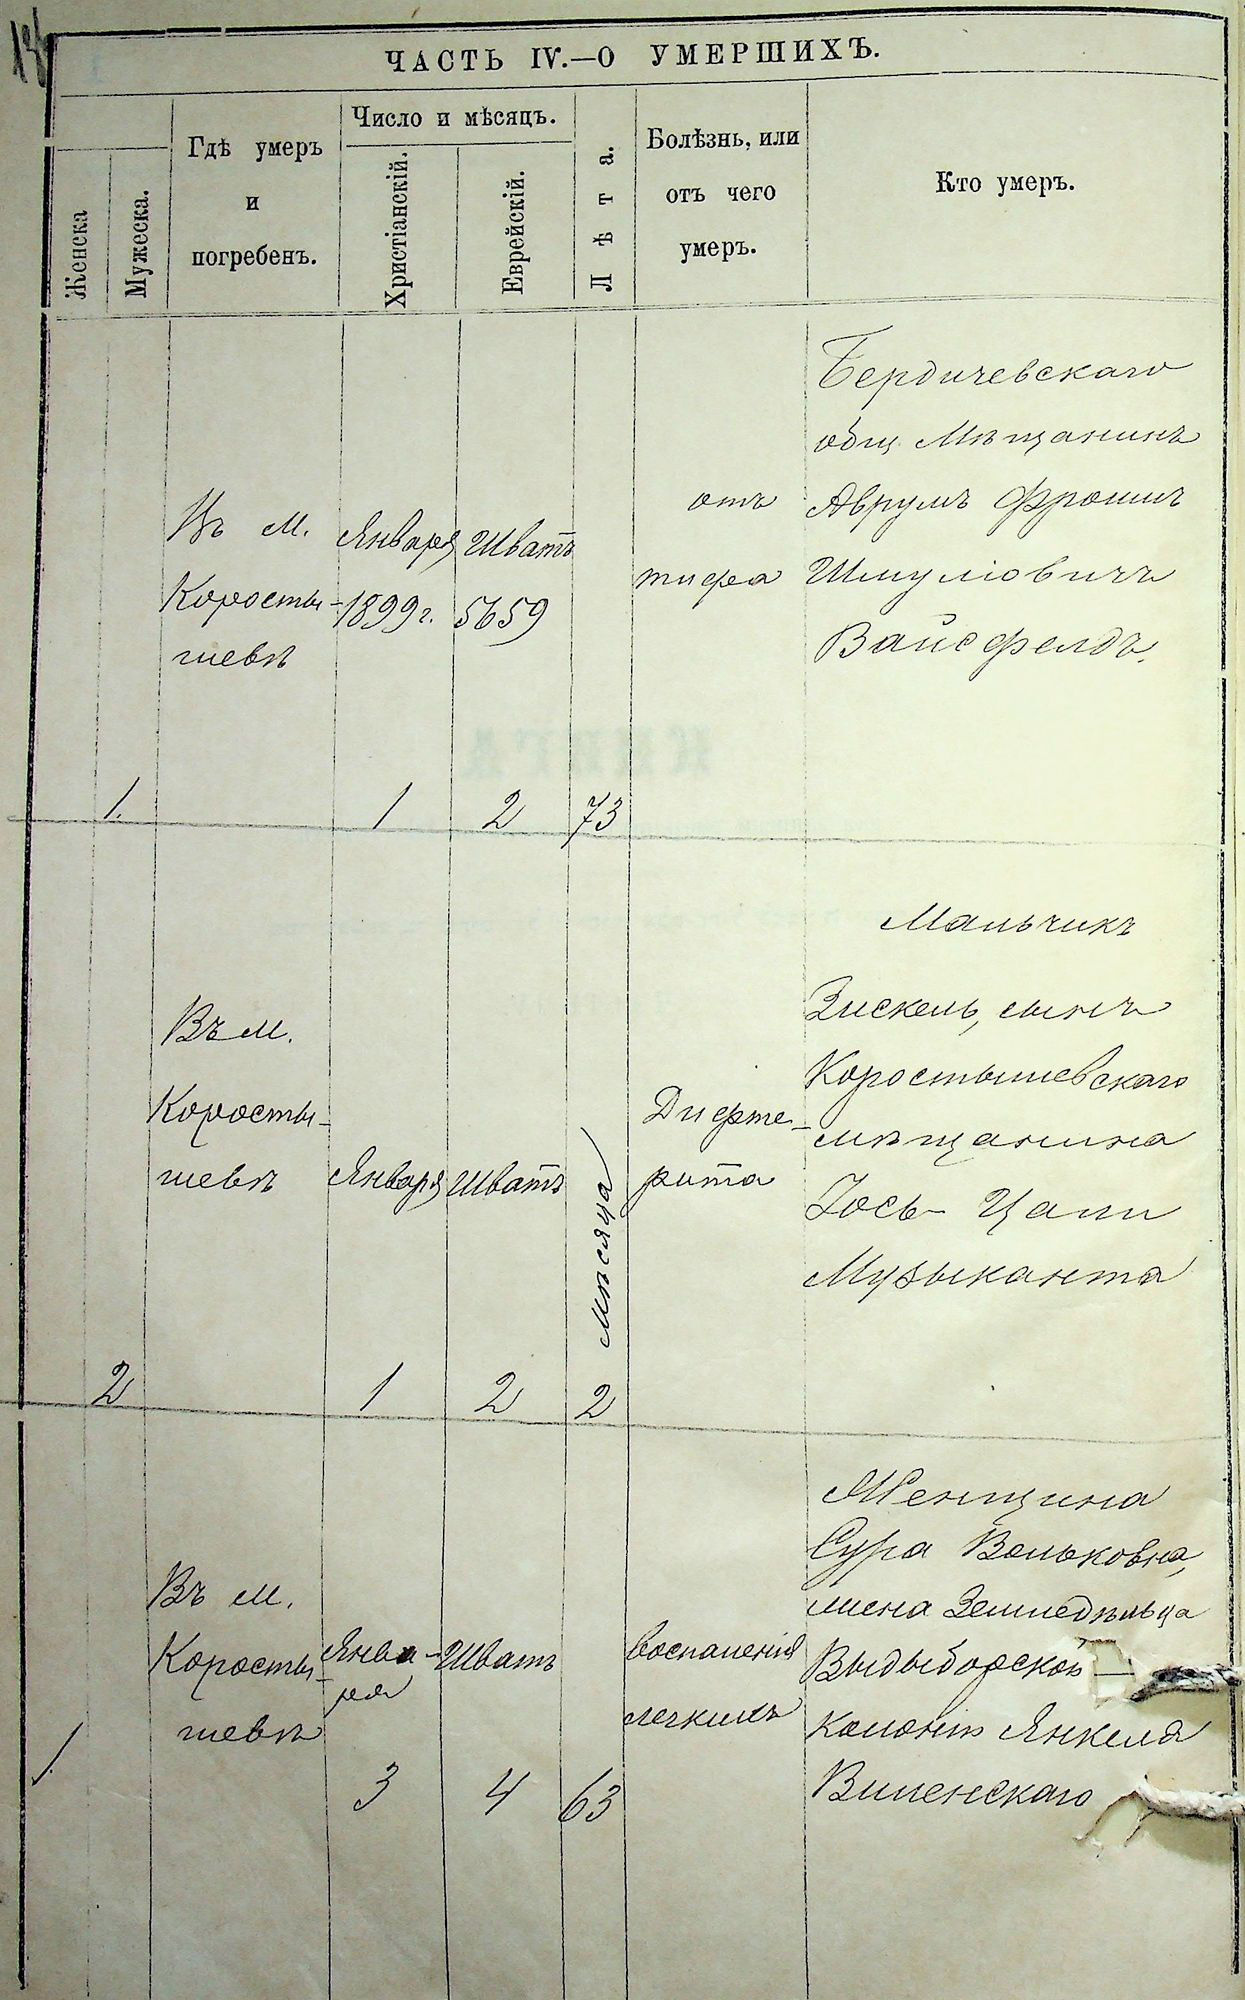 ЧАСТЬ IV.—О УМЕРШИХЪ.
Женска
Мужеска.
Гдѣ умеръ
и
погребенъ.
Число и мѣсяцъ.
Христіанскій.
Еврейскій.
Лѣта.
Болѣзнь, или
отъ чего
умеръ.
Кто умеръ.
1.
Въ м.
Коросты-
шевѣ
Января
1899 г.
1
Шватъ
5659
2
73
отъ
тифа
Бердичевскаго
общ Мѣщанинъ
Аврумъ Фроимъ
Шмулiовичъ
Вайсфелдъ.
2
Въ м.
Коросты-
шевѣ
Января
1
Шватъ
2
2 мѣсяца
Дифте-
рита
Мальчикъ
Зискель, сынъ
Коростышевскаго
мѣщанина
Іось-Цали
Музыканта
1.
Въ м.
Коросты-
шевѣ
Янва-
ря
3
Шватъ
4
63
воспаленія
легкихъ
Женщина
Сура Вольковна,
жена Земледѣльца
Выдыборской
колоніи Янкеля
Виленскаго